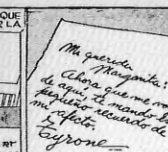 QUE
R LA
Mi querida
Margarita:
Ahora que me
de aquí, te mando el
pequeño recuerdo de
mi afecto.
Tayrone